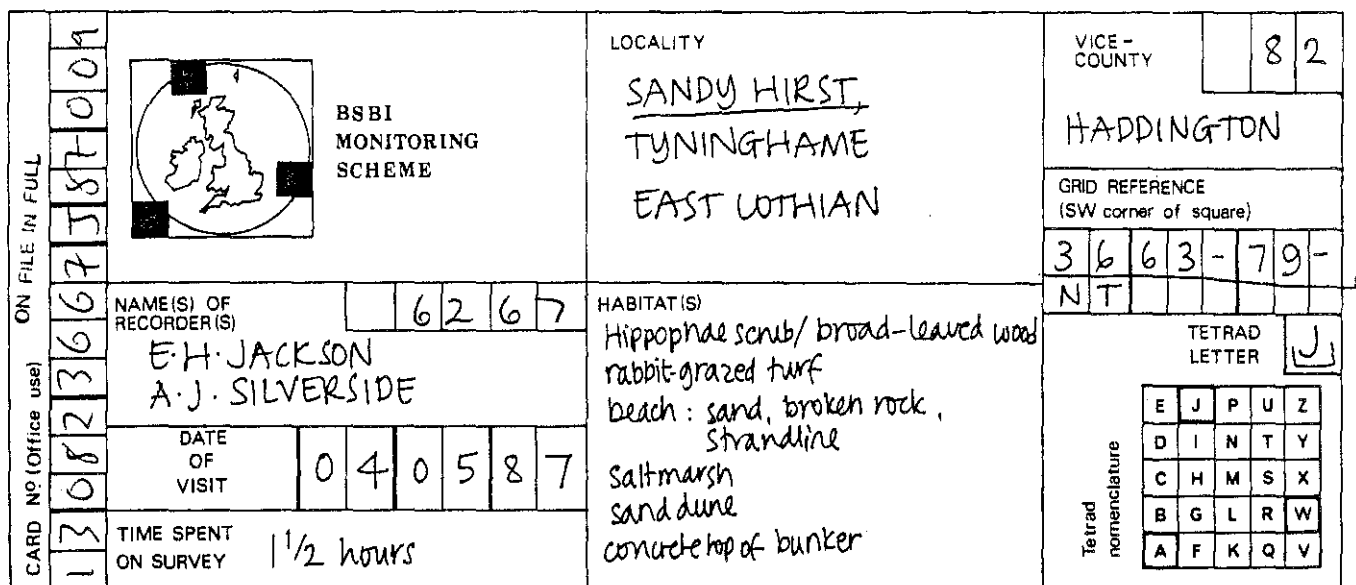 CARD Nº (Office use) ON FILE IN FULL
1 3 0 8 2 3 6 6 7 J 8 7 0 0 9
BSBI
MONITORING
SCHEME
LOCALITY
SANDY HIRST,
TYNINGHAME
EAST LOTHIAN
VICE-
COUNTY
8 2
HADDINGTON
GRID REFERENCE
(SW corner of square)
3 6 6 3 - 7 9 -
N T
NAME(S) OF
RECORDER(S)
6 2 6 7
E.H. JACKSON
A.J. SILVERSIDE
DATE
OF
VISIT
0 4 0 5 8 7
TIME SPENT
ON SURVEY
1 1/2 hours
HABITAT(S)
Hippophae scrub/ broad-leaved wood
rabbit-grazed turf
beach : sand, broken rock,
strandline
saltmarsh
sand dune
concrete top of bunker
TETRAD
LETTER
J
Tetrad
nomenclature
E J P U Z
D I N T Y
C H M S X
B G L R W
A F K Q V